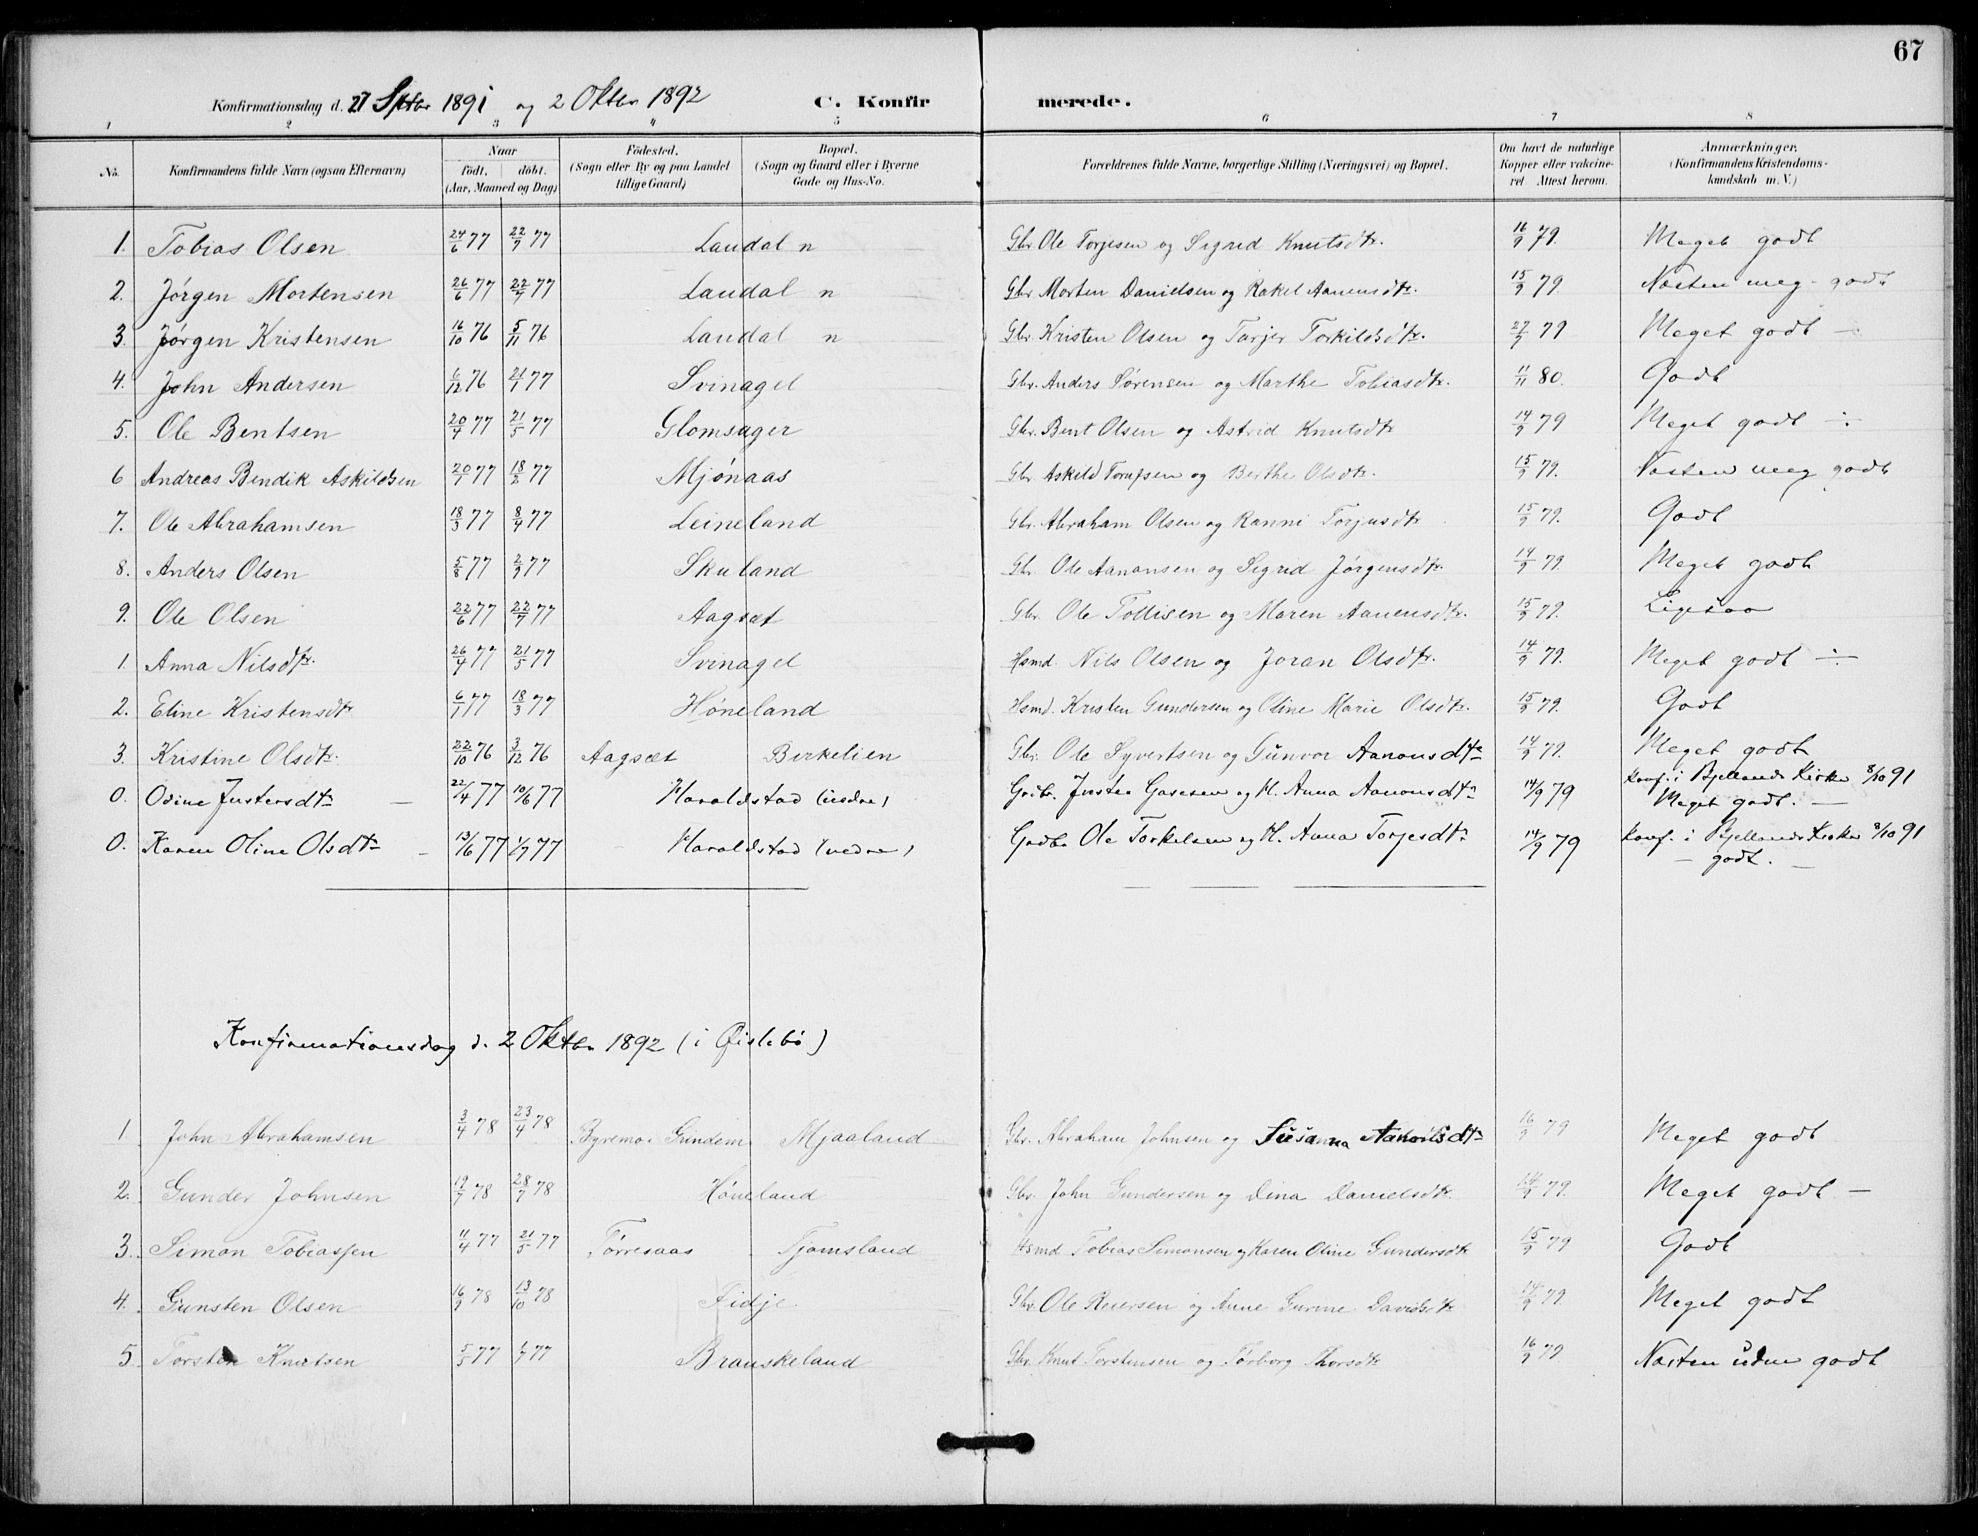 67
Konfirmationsdag d. 27 Septbr 1891 og 2 Oktbr 1892 C. Konfirmerede.
1 2 3 4 5 6 7 8
No. Konfirmandens fulde Navn (ogsaa Efternavn) Naar født. døbt. (Aar, Maaned og Dag) Fødested. (Sogn eller By og paa Landet tillige Gaard) Bopæl. (Sogn og Gaard eller i Byerne Gade og Hus-No. Forældrenes fulde Navne, borgerlige Stilling (Næringsvei) og Bopæl. Om havt de naturlige Kopper eller vakcineret Attest herom. Anmærkninger, (Konfirmandens Kristendomskundskab m. V.)
1. Tobias Olsen 24/6 77 22/7 77 Laudal n Gbr. Ole Torjesen og Sigrid Knutsdtr. 16/9 79. Meget godt
2. Jörgen Mortensen 26/6 77 22/7 77 Laudal n Gbr Morten Danielsen og Rakel Aanensdtr. 15/9 79. Næsten meg. godt
3. Jørgen Kristensen 16/10 76 5/11 76 Laudal n Gbr. Kristen Olsen og Tarjer Torkildsdtr. 27/7 79 Meget godt —
4. John Andersen 6/12 76 21/1 77 Svinagel Gbr. Anders Sørensen og Marthe Tobiasdtr. 11/11 80. Godt
5. Ole Bentsen 20/4 77 21/5 77 Glomsager Gbr. Bent Olsen og Astrid Knutsdtr 14/9 79 Meget godt ÷
6 Andreas Bendik Askildsen 20/1 77 18/2 77 Mjónaas Gbr. Askild og Berthe Olsdtr. 15/9 79. Næsten meg godt
7. Ole Abrahamsen 18/3 77 8/4 77 Leineland Gbr. Abraham Olsen og Ranni Torjusdtr 15/9 79. Godt
8. Anders Olsen 5/8 77 2/9 77 Skuland Gbr. Ole Aanonsen og Sigrid Jørgensdtr. 14/9 79. Meget godt
9. Ole Olsen 22/6 77 22/7 77 Aagsæt Gbr. Ole Tollisen og Maren Aanensdtr. 15/9 79. Ligesaa
1. Anna Nilsdtr. 26/4 77 21/5 77 Svinagel Hsmd. Nils Olsen og Joran Olsdtr. 14/9 79. Meget godt ÷
2. Eline Kristensdtr 6/1 77 18/3 77 Høneland Hsmd. Kristen Gundersen og Oline Marie Olsdtr. 15/9 79. Godt
3. Kristine Olsdtr. 22/10 76 3/12 76 Aagsæt Birkelien Gbr. Ole Syvertsen og Gunvor Aanonsdtr 14/9 79. Meget godt
0. Odine Justersdtr — 22/4 77 10/6 77 Haraldstad (nedre) Gbr. Gasesen og H. Anna Aanonsdtr 14/9 79 Konf. i Bjellands Kirke 8/10 91
Meget godt. —
0. Karen Oline Olsdtr — 13/6 77 1/7 77 Haraldstad (nedre) Gaardb. Ole Torkelsen og H. Anna Torjesdtr 14/9 79 Konf. i Bjellands Kirke 8/10 91
— godt. —
Konfirmationsdag d. 2 Oktbr 1892 (i Øislebø)
1 John Abrahamsen 3/4 78 23/4 78 Byremo i Grindem Mjaaland Gbr. Abraham Johnsen og Susanna Aanonsdtr 16/9 79 Meget godt
2. Gunder Johnsen 19/7 78 28/7 78 Høneland Gbr. John Gundersen og Dina Danielsdtr. 14/9 79. Meget godt —
3. Simon Tobiassen 11/4 77 21/5 77 Tørresaas Tjomsland Hsmd Tobias Simonsen og Karen Oline Gundersdtr 15/9 79 Godt
4. Gunsten Olsen 16/9 78 13/10 78 Fidje Gbr. Ole Reiersen og Anne Gurine Davidsdtr 14/9 79. Meget godt
5. Torsten Knutsen 5/5 77 1/7 77 Brauskeland Gbr. Knut Torstensen og Tørborg Thorsdtr 16/9 79 Næsten uden godt